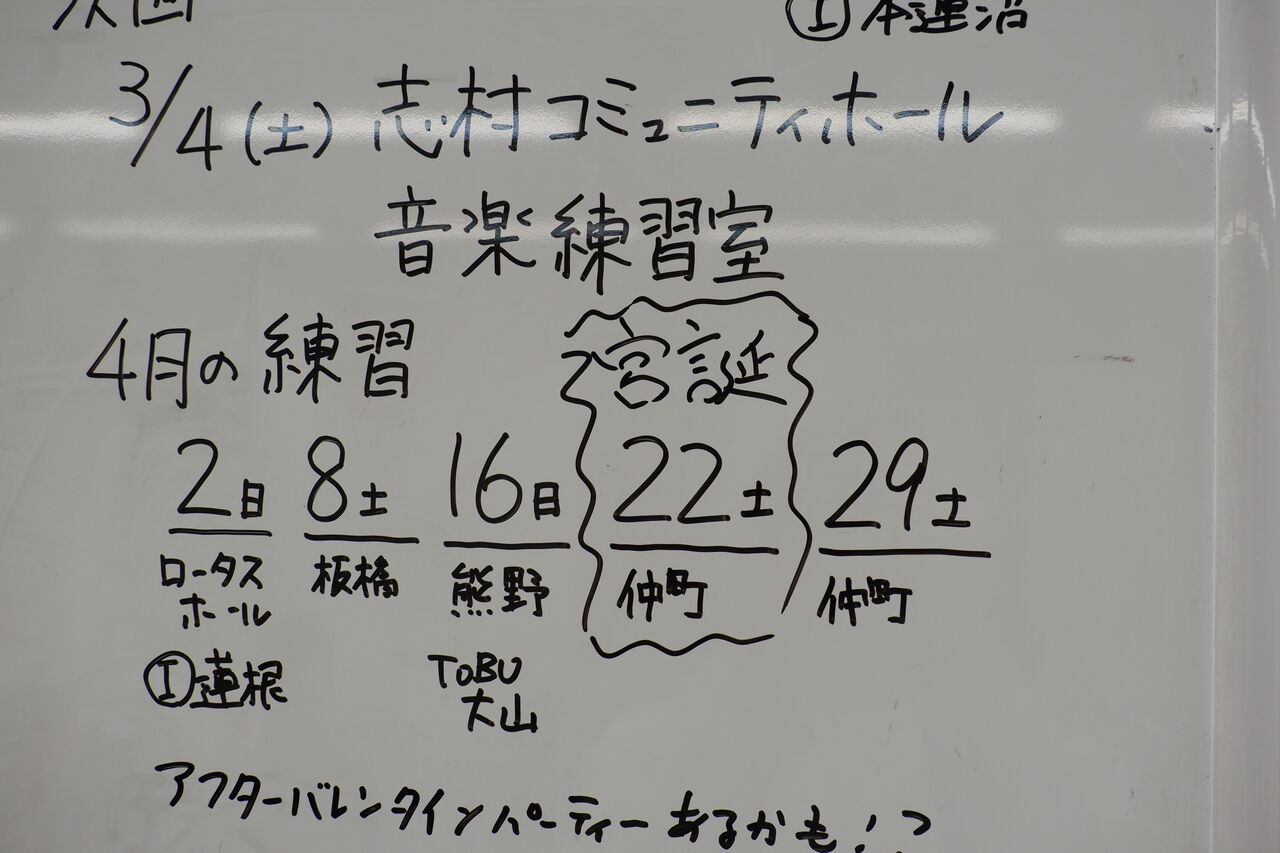 次回
Ⓘ本蓮沼
3/4(土) 志村コミュニティホール
音楽練習室
4月の練習
宮誕
2日 8土 16日 22土 29土
ロータスホール 板橋 熊野 仲町 仲町
Ⓘ蓮根 TOBU大山
アフターバレンタインパーティーあるかも!?